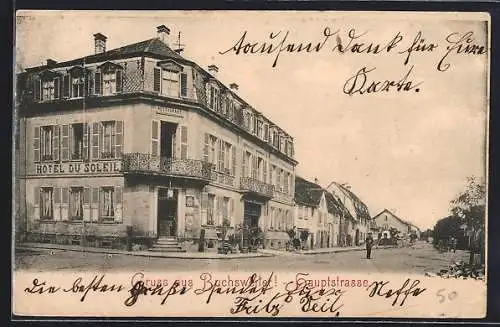 tausend Dank für Eure
Karte.
RESTAURANT
HOTEL DU SOLEIL
Gruss aus Buchsweiler! Hauptstrasse.
Die besten Grüße sendet Euer Neffe
Fritz Teil
50